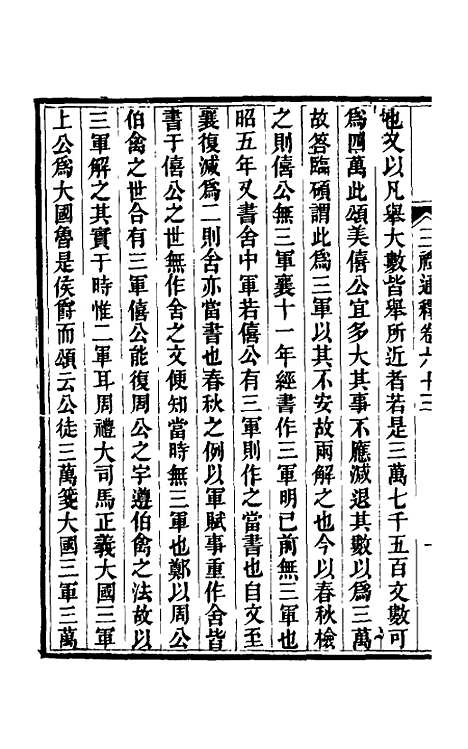 三禮通釋卷六十三
一
也又以凡舉大數皆舉所近者若是三萬七千五百文數可
爲四萬此頌美僖公宜多大其事不應減退其數以爲三萬
故答臨碩謂此爲三軍以其不安故兩解之也今以春秋檢
之則僖公無三軍襄十一年經書作三軍明已前無三軍也
昭五年又書舍中軍若僖公有三軍則作之當書也自文至
襄復減爲二則舍亦當書也春秋之例以軍賦事重作舍皆
書于僖公之世無作舍之文便知當時無三軍也鄭以周公
伯禽之世合有三軍僖公能復周公之宇遵伯禽之法故以
三軍解之其實于時惟二軍耳周禮大司馬正義大國三軍
上公爲大國魯是侯爵而頌云公徒三萬箋大國三軍三萬